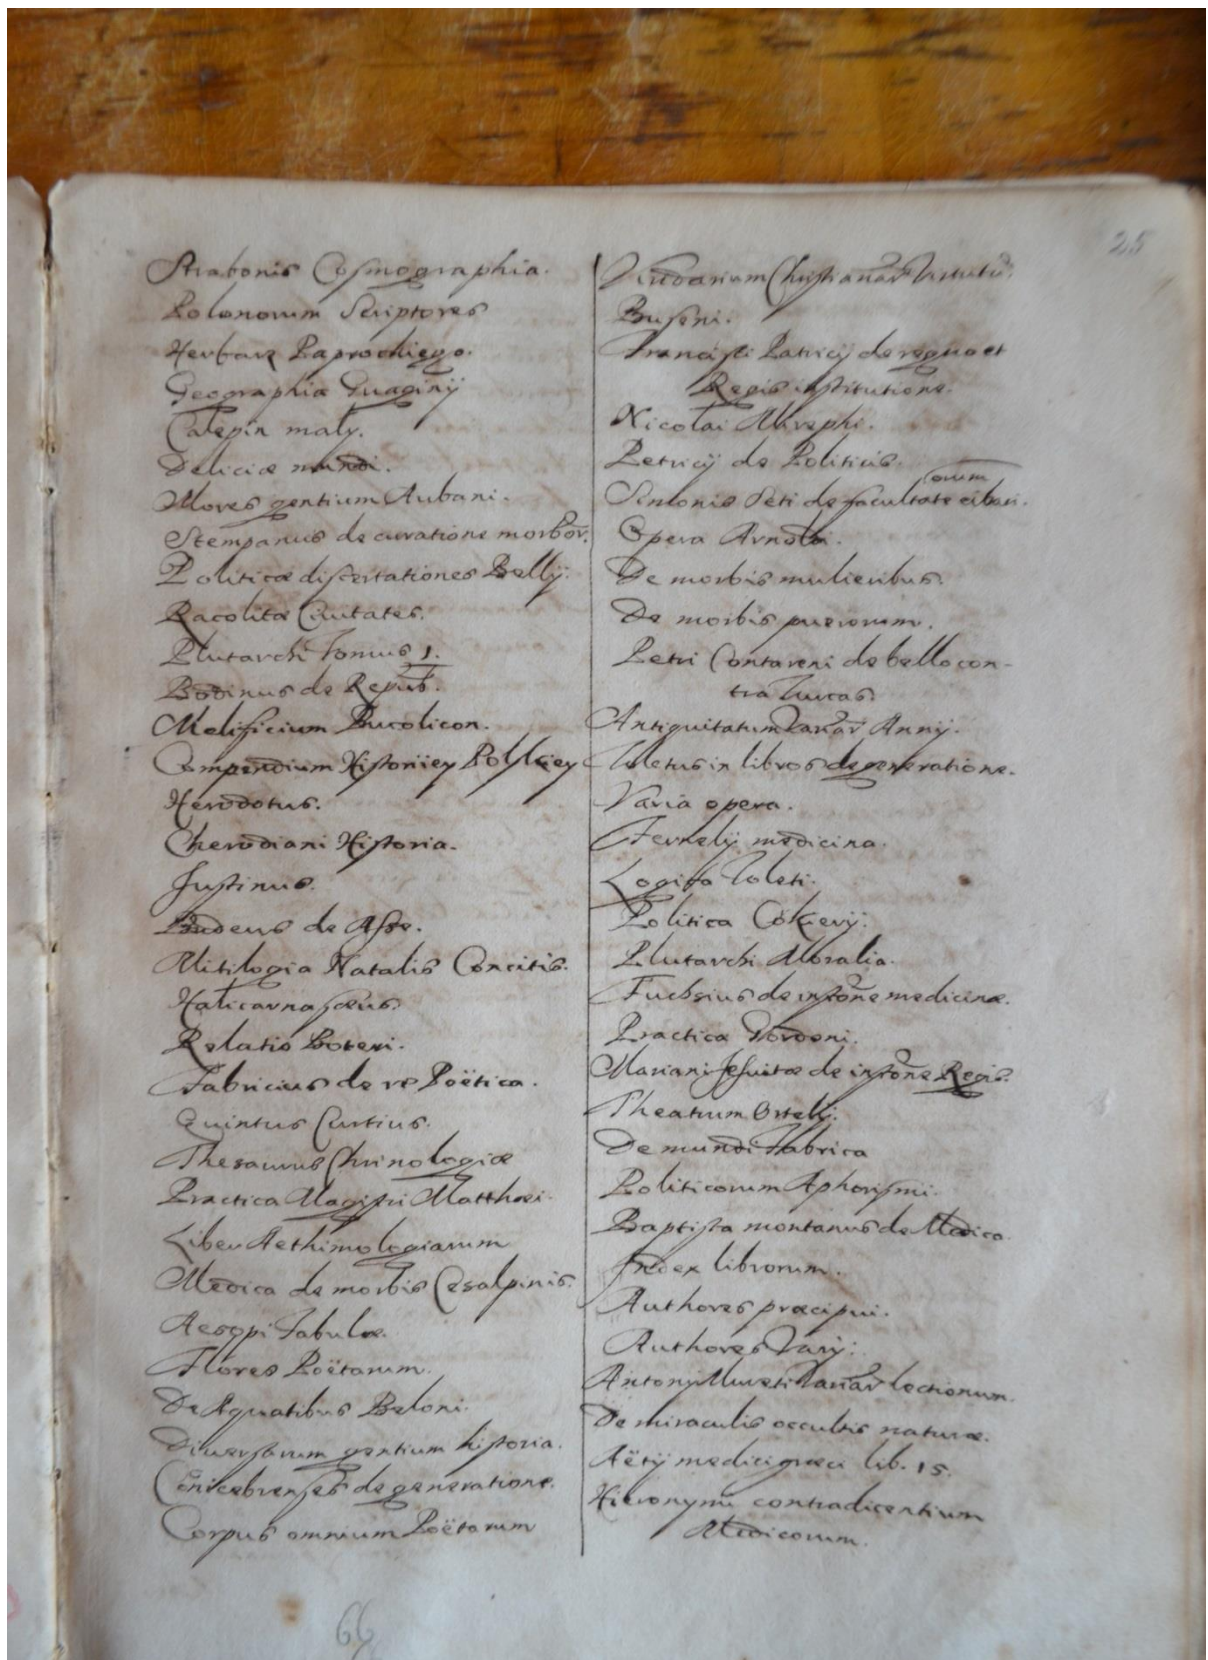 25
Strabonis Cosmographia.
Polonorum Scriptores
Herbarz Paprockiego.
Geographia Guagnini
Calepin mały.
Deliciæ mundi.
Mores gentium Aubani.
Stempanus de curatione morbor.
Politicæ dissertationes Belly.
Racolta Civitates.
Plutarchi Tomus 1.
Bodinus de Repub.
Melificium Bucolicon.
Compendium Historiiey Polskiey
Herodotus.
Cherodiani Historia.
Justinus.
Budeus de Asse.
Mitilogia Natalis Concitis.
Halicarnasæus.
Relatio Boteri.
Fabricius de re Poëtica.
Quintus Curtius.
Thesaurus Chrinologiæ
Practica Magistri Matthæi.
Liber Aethimologiarum
Medica de morbis Cesalpinis.
Aesopi Fabulæ.
Flores Poëtarum.
De Aquatibus Beloni.
Diuersarum gentium historia.
de generatione.
Corpus omnium Poëtarum
Viridarium Christianar Virtutu.
Buseni.
Francisci Patricij de regno et
Regis institutione.
Nicolai Mirephi.
Petricij de Politicis.
Simonis Seti de facultate cibariorum.
Opera Arnoldi.
De morbis mulieribus.
De morbis puerorum.
Petri Contareni de bello con-
tra Turcas.
Antiquitatum Variar Annij.
Toletus in libros de generatione.
Varia opera.
Fernelij medicina.
Logica Toleti.
Politica Cokierij.
Plutarchi Moralia.
Fuchsius de instone medicinæ.
Practica Gordoni.
Mariani Jesuitæ de instone Regis.
Theatrum Ortelij.
De mundi Fabrica
Politicorum Aphorismi.
Baptista montanus de Medica
Index librorum.
Authores præcipui.
Authores Varij.
Antonij Mureti Variar lectionum.
De miraculis occultis naturæ.
Aëtij medici græci lib. 15.
Hieronymi contradicentium
Medicorum.
66